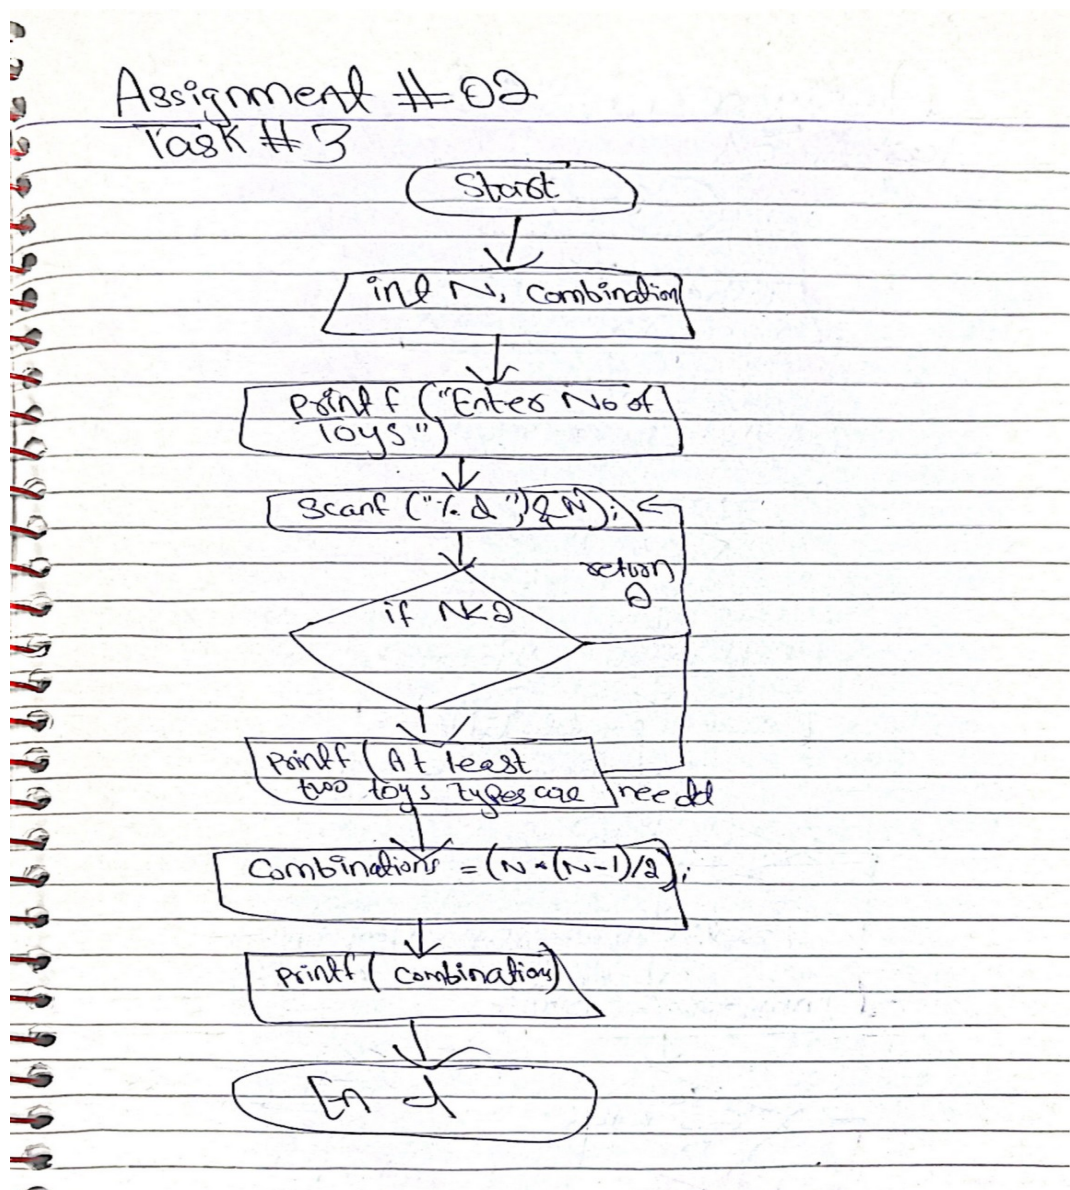 Assignment # 02
Task # 3
Start
int N, Combination
printf ("Enter No of
Toys")
Scanf ("%d",&N);
if N<2
return
2
printf (At least
two toys types are needd
Combinations = (N*(N-1)/2);
printf ( combinations)
End